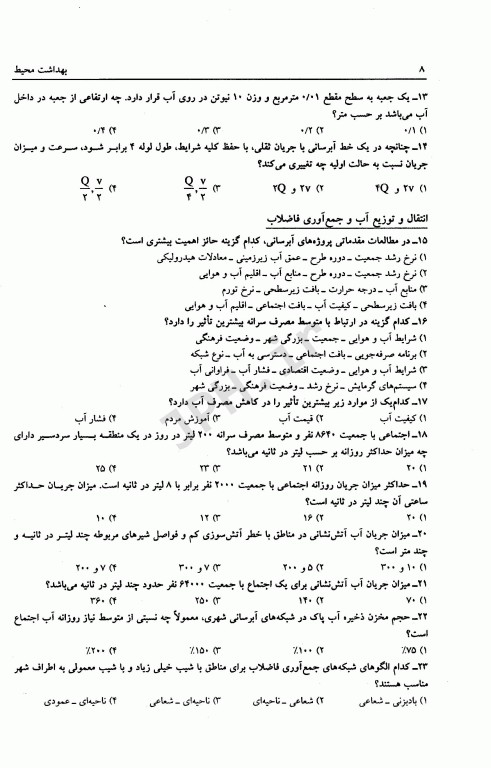 ۸
بهداشت محیط
۱۳ـ یک جعبه به سطح مقطع ۰/۰۱ مترمربع و وزن ۱۰ نیوتن در روی آب قرار دارد. چه ارتفاعی از جعبه در داخل
آب می‌باشد بر حسب متر؟
۱) ۰/۱ ۲) ۰/۲ ۳) ۰/۳ ۴) ۰/۴
۱۴ـ چنانچه در یک خط آبرسانی با جریان ثقلی، با حفظ کلیه شرایط، طول لوله ۴ برابر شود، سرعت و میزان
جریان نسبت به حالت اولیه چه تغییری می‌کند؟
۱) ۲۷ و ۴Q ۲) ۲۷ و ۲Q ۳) Q/۴ , ۷/۲ ۴) Q/۲ , ۷/۲
انتقال و توزیع آب و جمع‌آوری فاضلاب
۱۵ـ در مطالعات مقدماتی پروژه‌های آبرسانی، کدام گزینه حائز اهمیت بیشتری است؟
۱) نرخ رشد جمعیت ـ دوره طرح ـ عمق آب زیرزمینی ـ معادلات هیدرولیکی
۲) نرخ رشد جمعیت ـ دوره طرح ـ منابع آب ـ اقلیم آب و هوایی
۳) منابع آب ـ درجه حرارت ـ بافت زیرسطحی ـ نرخ تورم
۴) بافت زیرسطحی ـ کیفیت آب ـ بافت اجتماعی ـ اقلیم آب و هوایی
۱۶ـ کدام گزینه در ارتباط با متوسط مصرف سرانه بیشترین تأثیر را دارد؟
۱) شرایط آب و هوایی ـ جمعیت ـ بزرگی شهر ـ وضعیت فرهنگی
۲) برنامه صرفه‌جویی ـ بافت اجتماعی ـ دسترسی به آب ـ نوع شبکه
۳) شرایط آب و هوایی ـ وضعیت اقتصادی ـ فشار آب ـ فراوانی آب
۴) سیستم‌های گرمایش ـ نرخ رشد ـ وضعیت فرهنگی ـ بزرگی شهر
۱۷ـ کدام‌یک از موارد زیر بیشترین تأثیر را در کاهش مصرف آب دارد؟
۱) کیفیت آب ۲) قیمت آب ۳) آموزش مردم ۴) فشار آب
۱۸ـ اجتماعی با جمعیت ۸۶۴۰ نفر و متوسط مصرف سرانه ۲۰۰ لیتر در روز در یک منطقه بسیار سردسیر دارای
چه میزان حداکثر روزانه بر حسب لیتر در ثانیه می‌باشد؟
۱) ۲۰ ۲) ۲۱ ۳) ۲۳ ۴) ۲۵
۱۹ـ حداکثر میزان جریان روزانه اجتماعی با جمعیت ۲۰۰۰ نفر برابر با ۸ لیتر در ثانیه است. میزان جریان حداکثر
ساعتی آن چند لیتر در ثانیه است؟
۱) ۲۰ ۲) ۱۶ ۳) ۱۲ ۴) ۱۰
۲۰ـ میزان جریان آب آتش‌نشانی در مناطق با خطر آتش‌سوزی کم و فواصل شیرهای مربوطه چند لیتر در ثانیه و
چند متر است؟
۱) ۱۰ و ۳۰۰ ۲) ۵ و ۲۰۰ ۳) ۷ و ۳۰۰ ۴) ۷ و ۲۰۰
۲۱ـ میزان جریان آب آتش‌نشانی برای یک اجتماع با جمعیت ۶۴۰۰۰ نفر حدود چند لیتر در ثانیه می‌باشد؟
۱) ۷۰ ۲) ۱۴۰ ۳) ۲۵۰ ۴) ۳۶۰
۲۲ـ حجم مخزن ذخیره آب پاک در شبکه‌های آبرسانی شهری، معمولاً چه نسبتی از متوسط نیاز روزانه آب اجتماع
است؟
۱) ۷۵٪ ۲) ۱۰۰٪ ۳) ۱۵۰٪ ۴) ۲۰۰٪
۲۳ـ کدام الگوهای شبکه‌های جمع‌آوری فاضلاب برای مناطق با شیب خیلی زیاد و با شیب معمولی به اطراف شهر
مناسب هستند؟
۱) بادبزنی ـ شعاعی ۲) شعاعی ـ ناحیه‌ای ۳) ناحیه‌ای ـ شعاعی ۴) ناحیه‌ای ـ عمودی